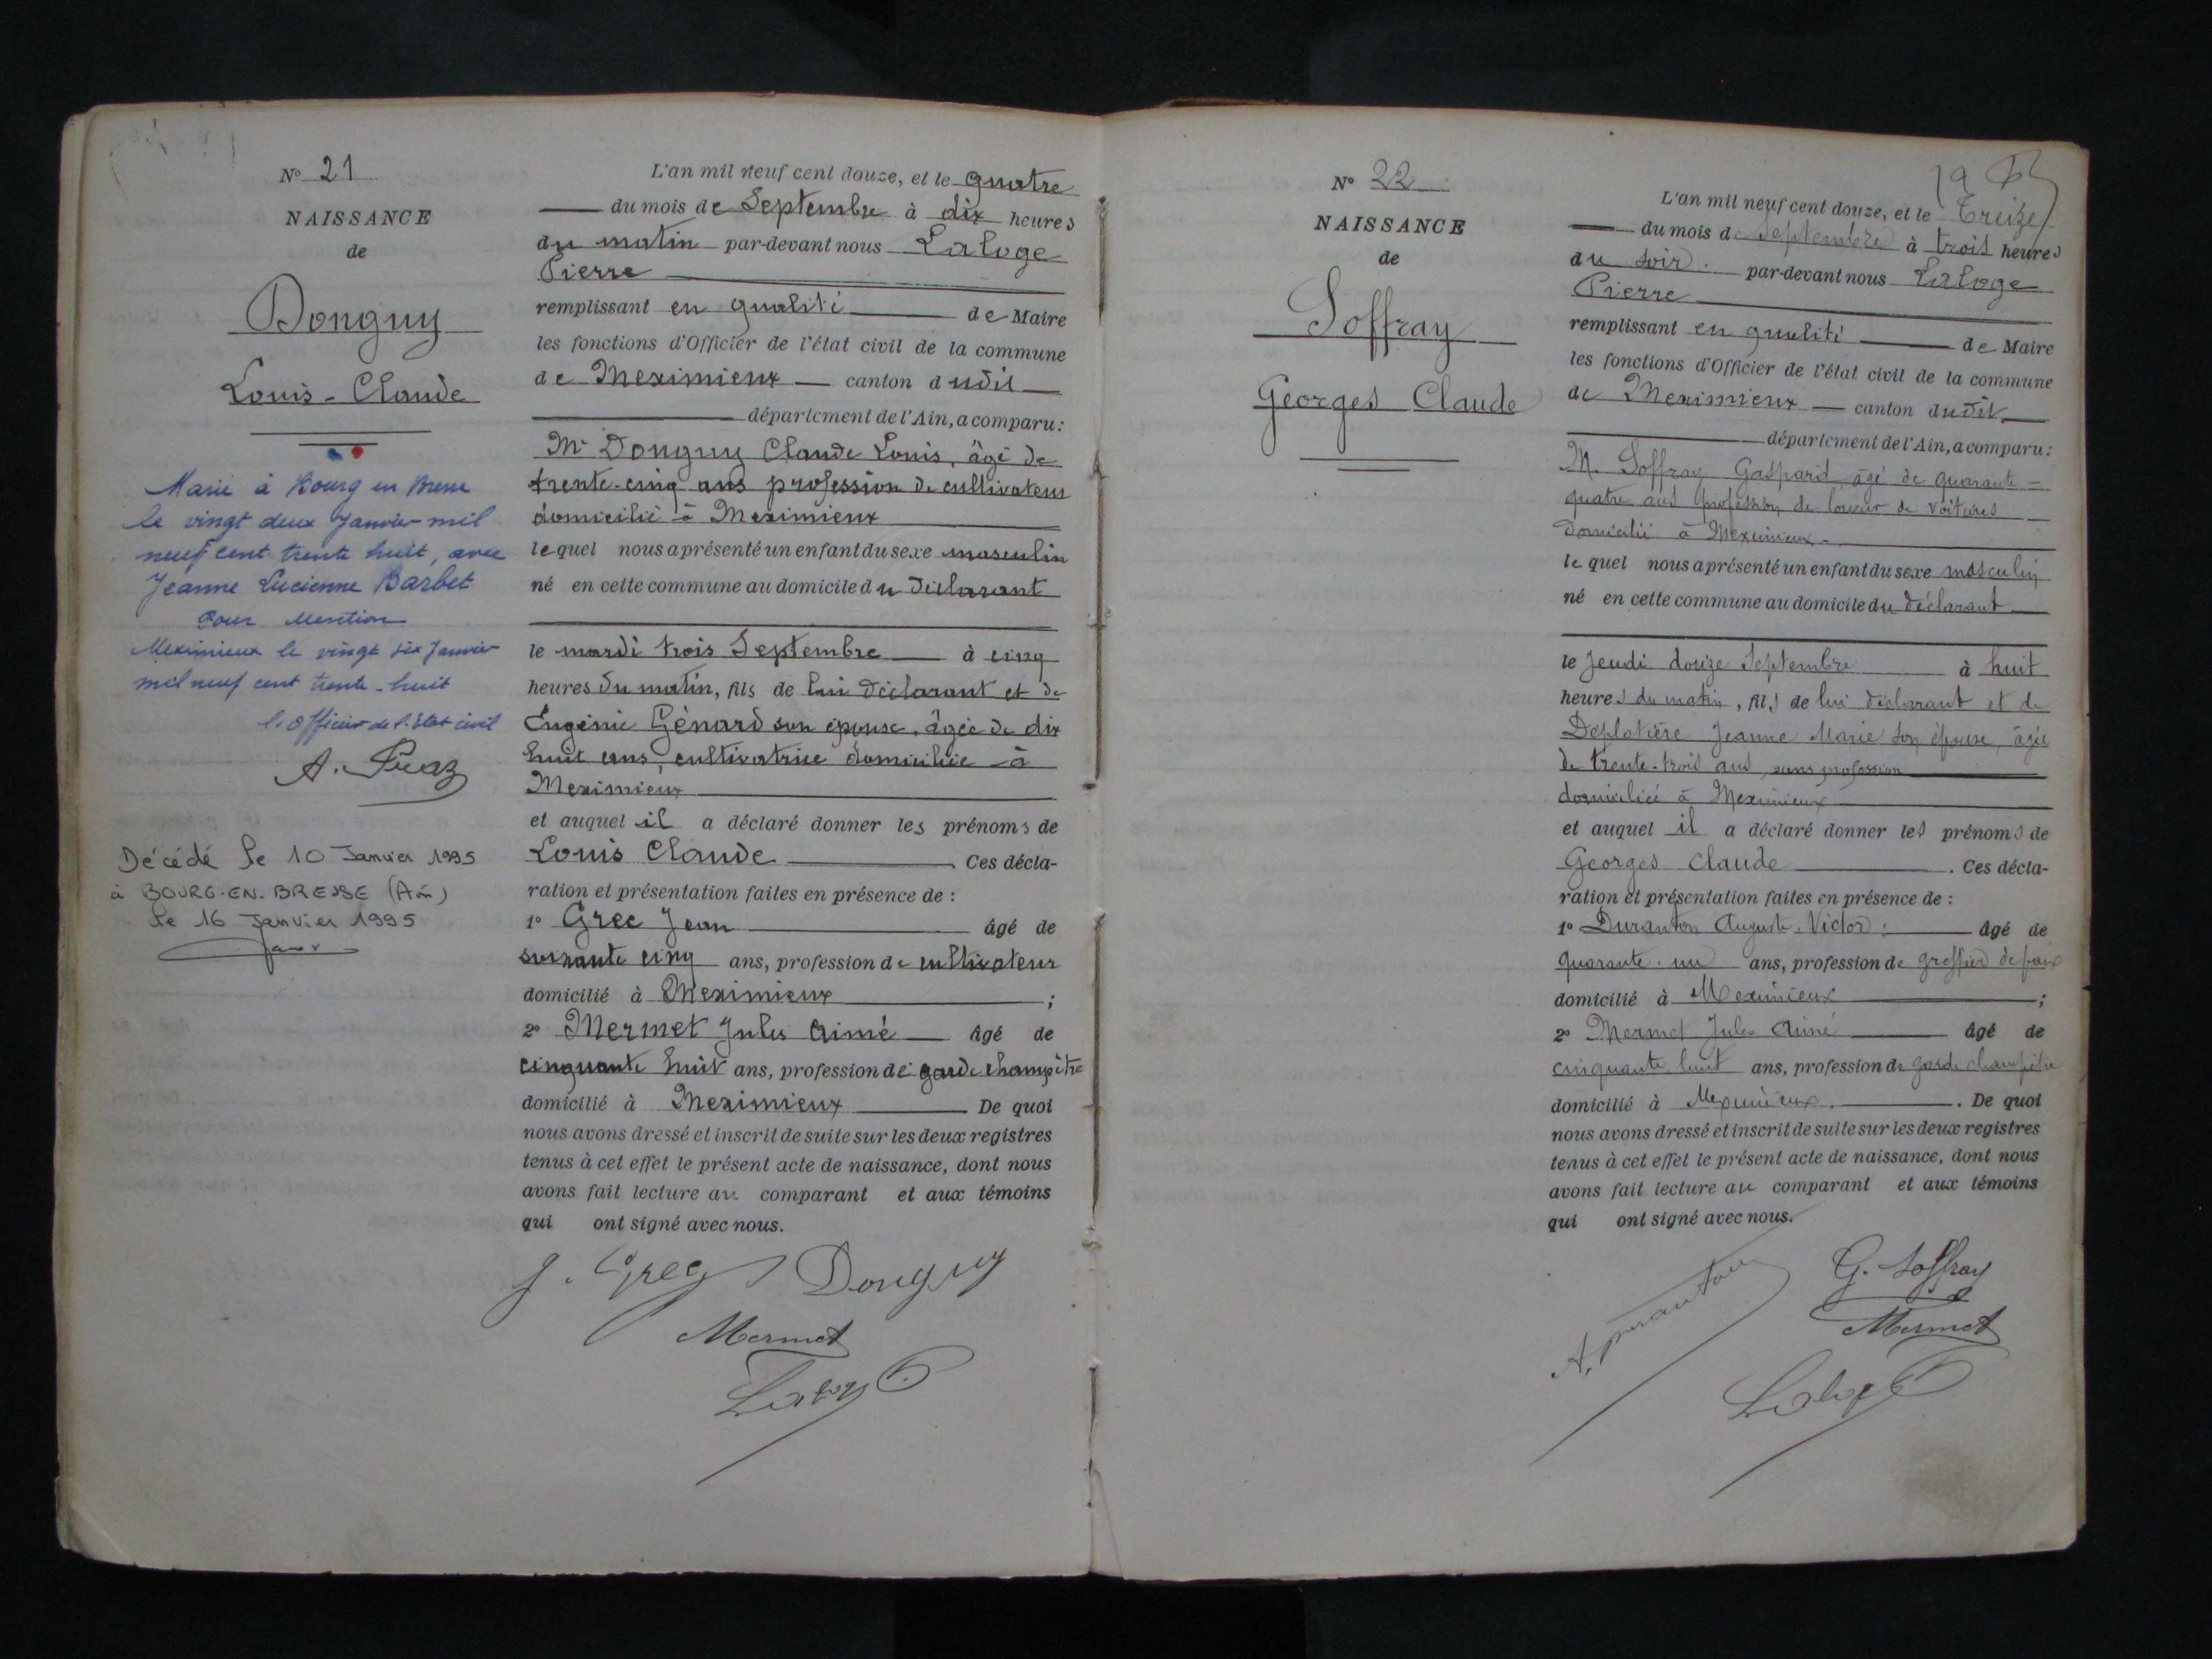 N° 21
NAISSANCE
de
Donguy
Louis - Claude
Marié à Bourg en Bresse
le vingt deux Janvier mil
neuf cent trente huit, avec
Jeanne Lucienne Barbet
Pour Mention
Meximieux le vingt six Janvier
mil neuf cent trente-huit
l'Officier de l'Etat civil
Décédé le 10 Janvier 1995
à BOURG-EN-BRESSE (Ain)
Le 16 Janvier 1995
L'an mil neuf cent douze, et le quatre
du mois de Septembre à dix heures
du matin par-devant nous Laloge
Pierre
remplissant en qualité de Maire
les fonctions d'Officier de l'état civil de la commune
de Meximieux canton dudit
département de l'Ain, a comparu :
Mr Donguy Claude Louis, âgé de
trente-cinq ans profession de cultivateur
domicilié à Meximieux
lequel nous a présenté un enfant du sexe masculin
né en cette commune au domicile du déclarant
le mardi trois Septembre à cinq
heures du matin, fils de lui déclarant et de
Eugénie Génard son épouse, âgée de dix
huit ans, cultivatrice domiciliée à
Meximieux
et auquel il a déclaré donner les prénoms de
Louis Claude Ces décla-
ration et présentation faites en présence de :
1° Grec Jean âgé de
soixante cinq ans, profession de cultivateur
domicilié à Meximieux ;
2° Mermet Jules Aimé âgé de
cinquante huit ans, profession de garde champêtre
domicilié à Meximieux De quoi
nous avons dressé et inscrit de suite sur les deux registres
tenus à cet effet le présent acte de naissance, dont nous
avons fait lecture au comparant et aux témoins
qui ont signé avec nous.
J. Grec Donguy
Mermet
Laloge
N° 22
NAISSANCE
de
Soffray
Georges Claude
L'an mil neuf cent douze, et le Treize
du mois de Septembre à trois heures
du soir. par-devant nous Laloge
Pierre
remplissant en qualité de Maire
les fonctions d'Officier de l'état civil de la commune
de Meximieux canton dudit
département de l'Ain, a comparu :
M. Soffray Gaspard âgé de quarante-
quatre ans profession de loueur de voitures
domicilié à Meximieux
lequel nous a présenté un enfant du sexe masculin
né en cette commune au domicile du déclarant
le Jeudi douze Septembre à huit
heures du matin, fils de lui déclarant et de
Deplatière Jeanne Marie son épouse, âgée
de trente-trois ans, sans profession
domiciliée à Meximieux
et auquel il a déclaré donner les prénoms de
Georges Claude . Ces décla-
ration et présentation faites en présence de :
1° Duranton Auguste Victor âgé de
quarante un ans, profession de greffier de paix
domicilié à Meximieux ;
2° Mermet Jules Aimé âgé de
cinquante huit ans, profession de garde champêtre
domicilié à Meximieux . De quoi
nous avons dressé et inscrit de suite sur les deux registres
tenus à cet effet le présent acte de naissance, dont nous
avons fait lecture au comparant et aux témoins
qui ont signé avec nous.
A. Duranton G. Soffray
Mermet
Laloge